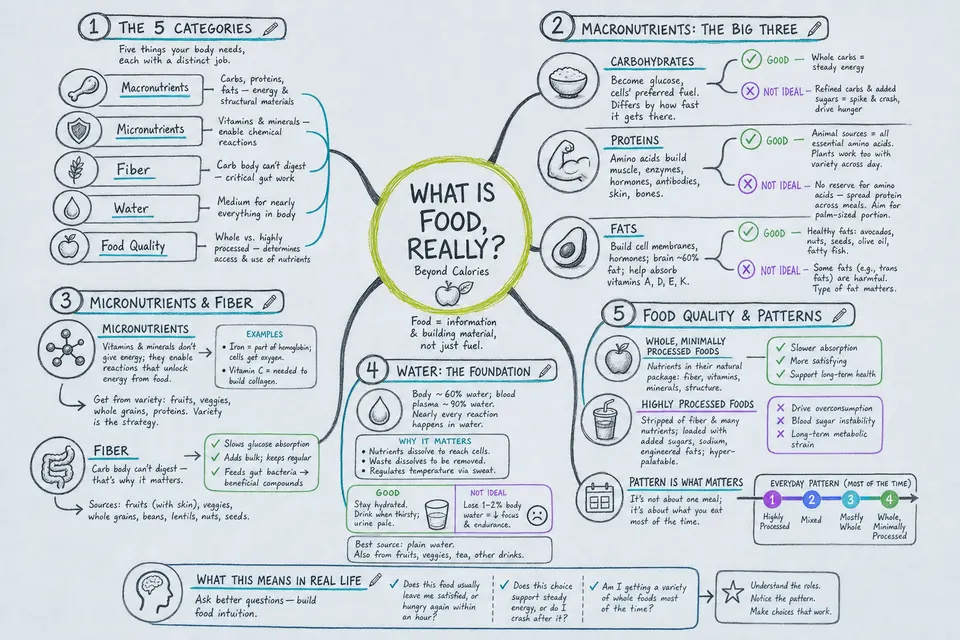 1 THE 5 CATEGORIES
Five things your body needs,
each with a distinct job.
Macronutrients
Carbs, proteins,
fats — energy &
structural materials
Micronutrients
Vitamins & minerals —
enable chemical
reactions
Fiber
Carb body can't digest —
critical gut work
Water
Medium for nearly
everything in body
Food Quality
Whole vs. highly
processed — determines
access & use of nutrients
WHAT IS
FOOD,
REALLY?
Beyond Calories
Food = information
& building material,
not just fuel.
2 MACRONUTRIENTS: THE BIG THREE
CARBOHYDRATES
Become glucose,
cells' preferred fuel.
Differs by how fast
it gets there.
GOOD — Whole carbs =
steady energy
NOT IDEAL — Refined carbs & added
sugars = spike & crash,
drive hunger
PROTEINS
Amino acids build
muscle, enzymes,
hormones, antibodies,
skin, bones.
GOOD — Animal sources = all
essential amino acids.
Plants work too with
variety across day.
NOT IDEAL — No reserve for amino
acids — spread protein
across meals. Aim for
palm-sized portion.
FATS
Build cell membranes,
hormones; brain ~60%
fat; help absorb
vitamins A, D, E, K.
GOOD — Healthy fats: avocados,
nuts, seeds, olive oil,
fatty fish.
NOT IDEAL — Some fats (e.g., trans
fats) are harmful.
Type of fat matters.
3 MICRONUTRIENTS & FIBER
MICRONUTRIENTS
Vitamins & minerals don't
give energy; they enable
reactions that unlock
energy from food.
EXAMPLES
• Iron = part of hemoglobin;
cells get oxygen.
• Vitamin C = needed to
build collagen.
Get from variety: fruits, veggies,
whole grains, proteins. Variety
is the strategy.
FIBER
Carb body can't digest —
that's why it matters.
✓ Slows glucose absorption
✓ Adds bulk; keeps regular
✓ Feeds gut bacteria →
beneficial compounds
Sources: fruits (with skin), veggies,
whole grains, beans, lentils, nuts, seeds.
4 WATER: THE FOUNDATION
Body ~ 60% water; blood
plasma ~ 90% water.
Nearly every reaction
happens in water.
WHY IT MATTERS
• Nutrients dissolve to reach cells.
• Waste dissolves to be removed.
• Regulates temperature via sweat.
GOOD
Stay hydrated.
Drink when thirsty;
urine pale.
NOT IDEAL
Lose 1–2% body
water = ↓ focus
& endurance.
Best source: plain water.
Also from fruits, veggies, tea, other drinks.
5 FOOD QUALITY & PATTERNS
WHOLE, MINIMALLY
PROCESSED FOODS
Nutrients in their natural
package: fiber, vitamins,
minerals, structure.
✓ Slower absorption
✓ More satisfying
✓ Support long-term health
HIGHLY PROCESSED FOODS
Stripped of fiber & many
nutrients; loaded with
added sugars, sodium,
engineered fats; hyper-
palatable.
✗ Drive overconsumption
✗ Blood sugar instability
✗ Long-term metabolic
strain
PATTERN IS WHAT MATTERS
It's not about one meal;
it's about what you eat
most of the time.
EVERYDAY PATTERN (MOST OF THE TIME)
1 2 3 4
Highly
Processed
Mixed
Mostly
Whole
Whole,
Minimally
Processed
WHAT THIS MEANS IN REAL LIFE
Ask better questions — build
food intuition.
✓ Does this food usually
leave me satisfied, or
hungry again within
an hour?
✓ Does this choice
support steady
energy, or do I
crash after it?
✓ Am I getting a variety
of whole foods most
of the time?
Understand the roles.
Notice the pattern.
Make choices that work.